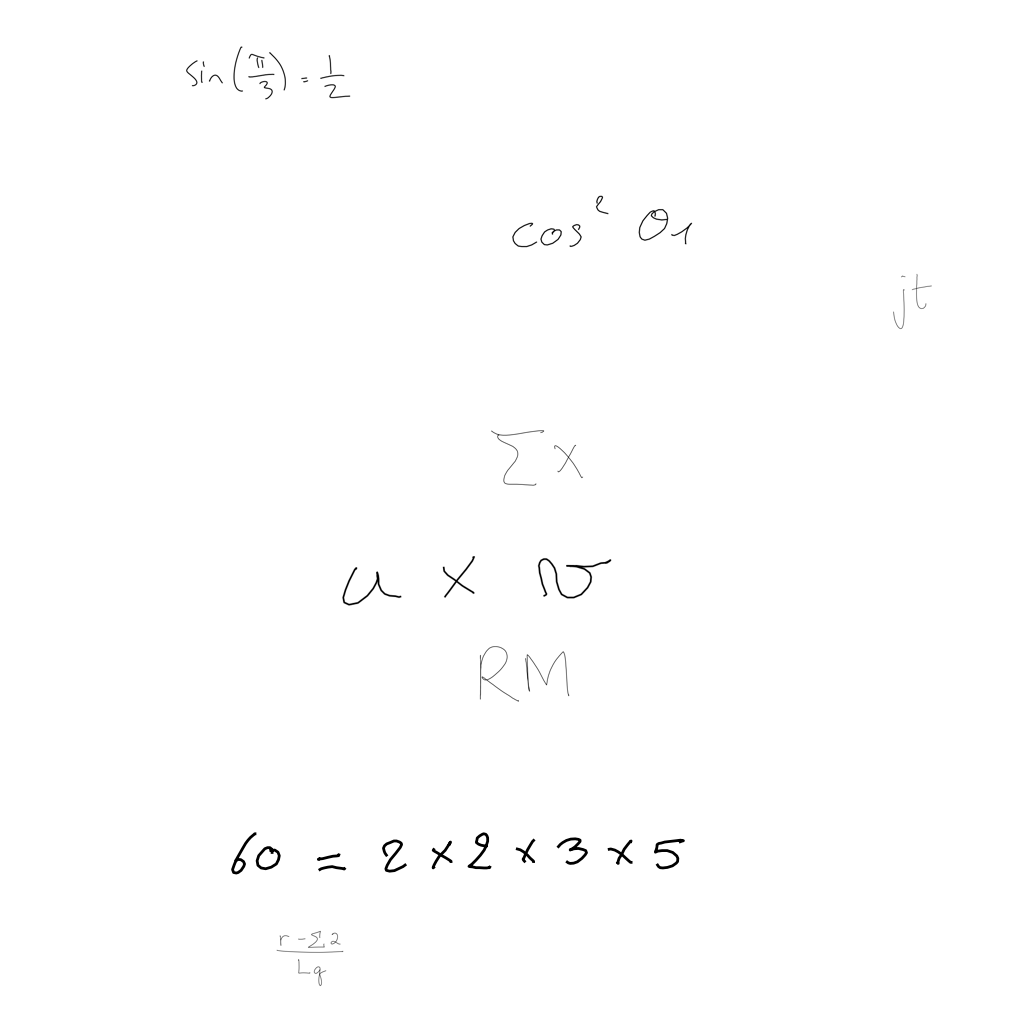 sin(π/3) = 1/2
cos² θ₁
jt
Σ x
u × v
RM
60 = 2 × 2 × 3 × 5
(r - Σ 2)/(Lq)